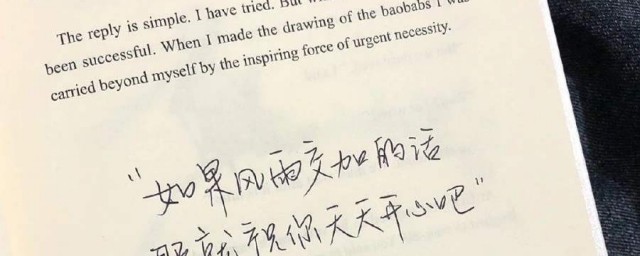 The reply is simple. I have tried. But
been successful. When I made the drawing of the baobabs I was
carried beyond myself by the inspiring force of urgent necessity.
“如果风雨交加的话
那就祝你天天开心吧”